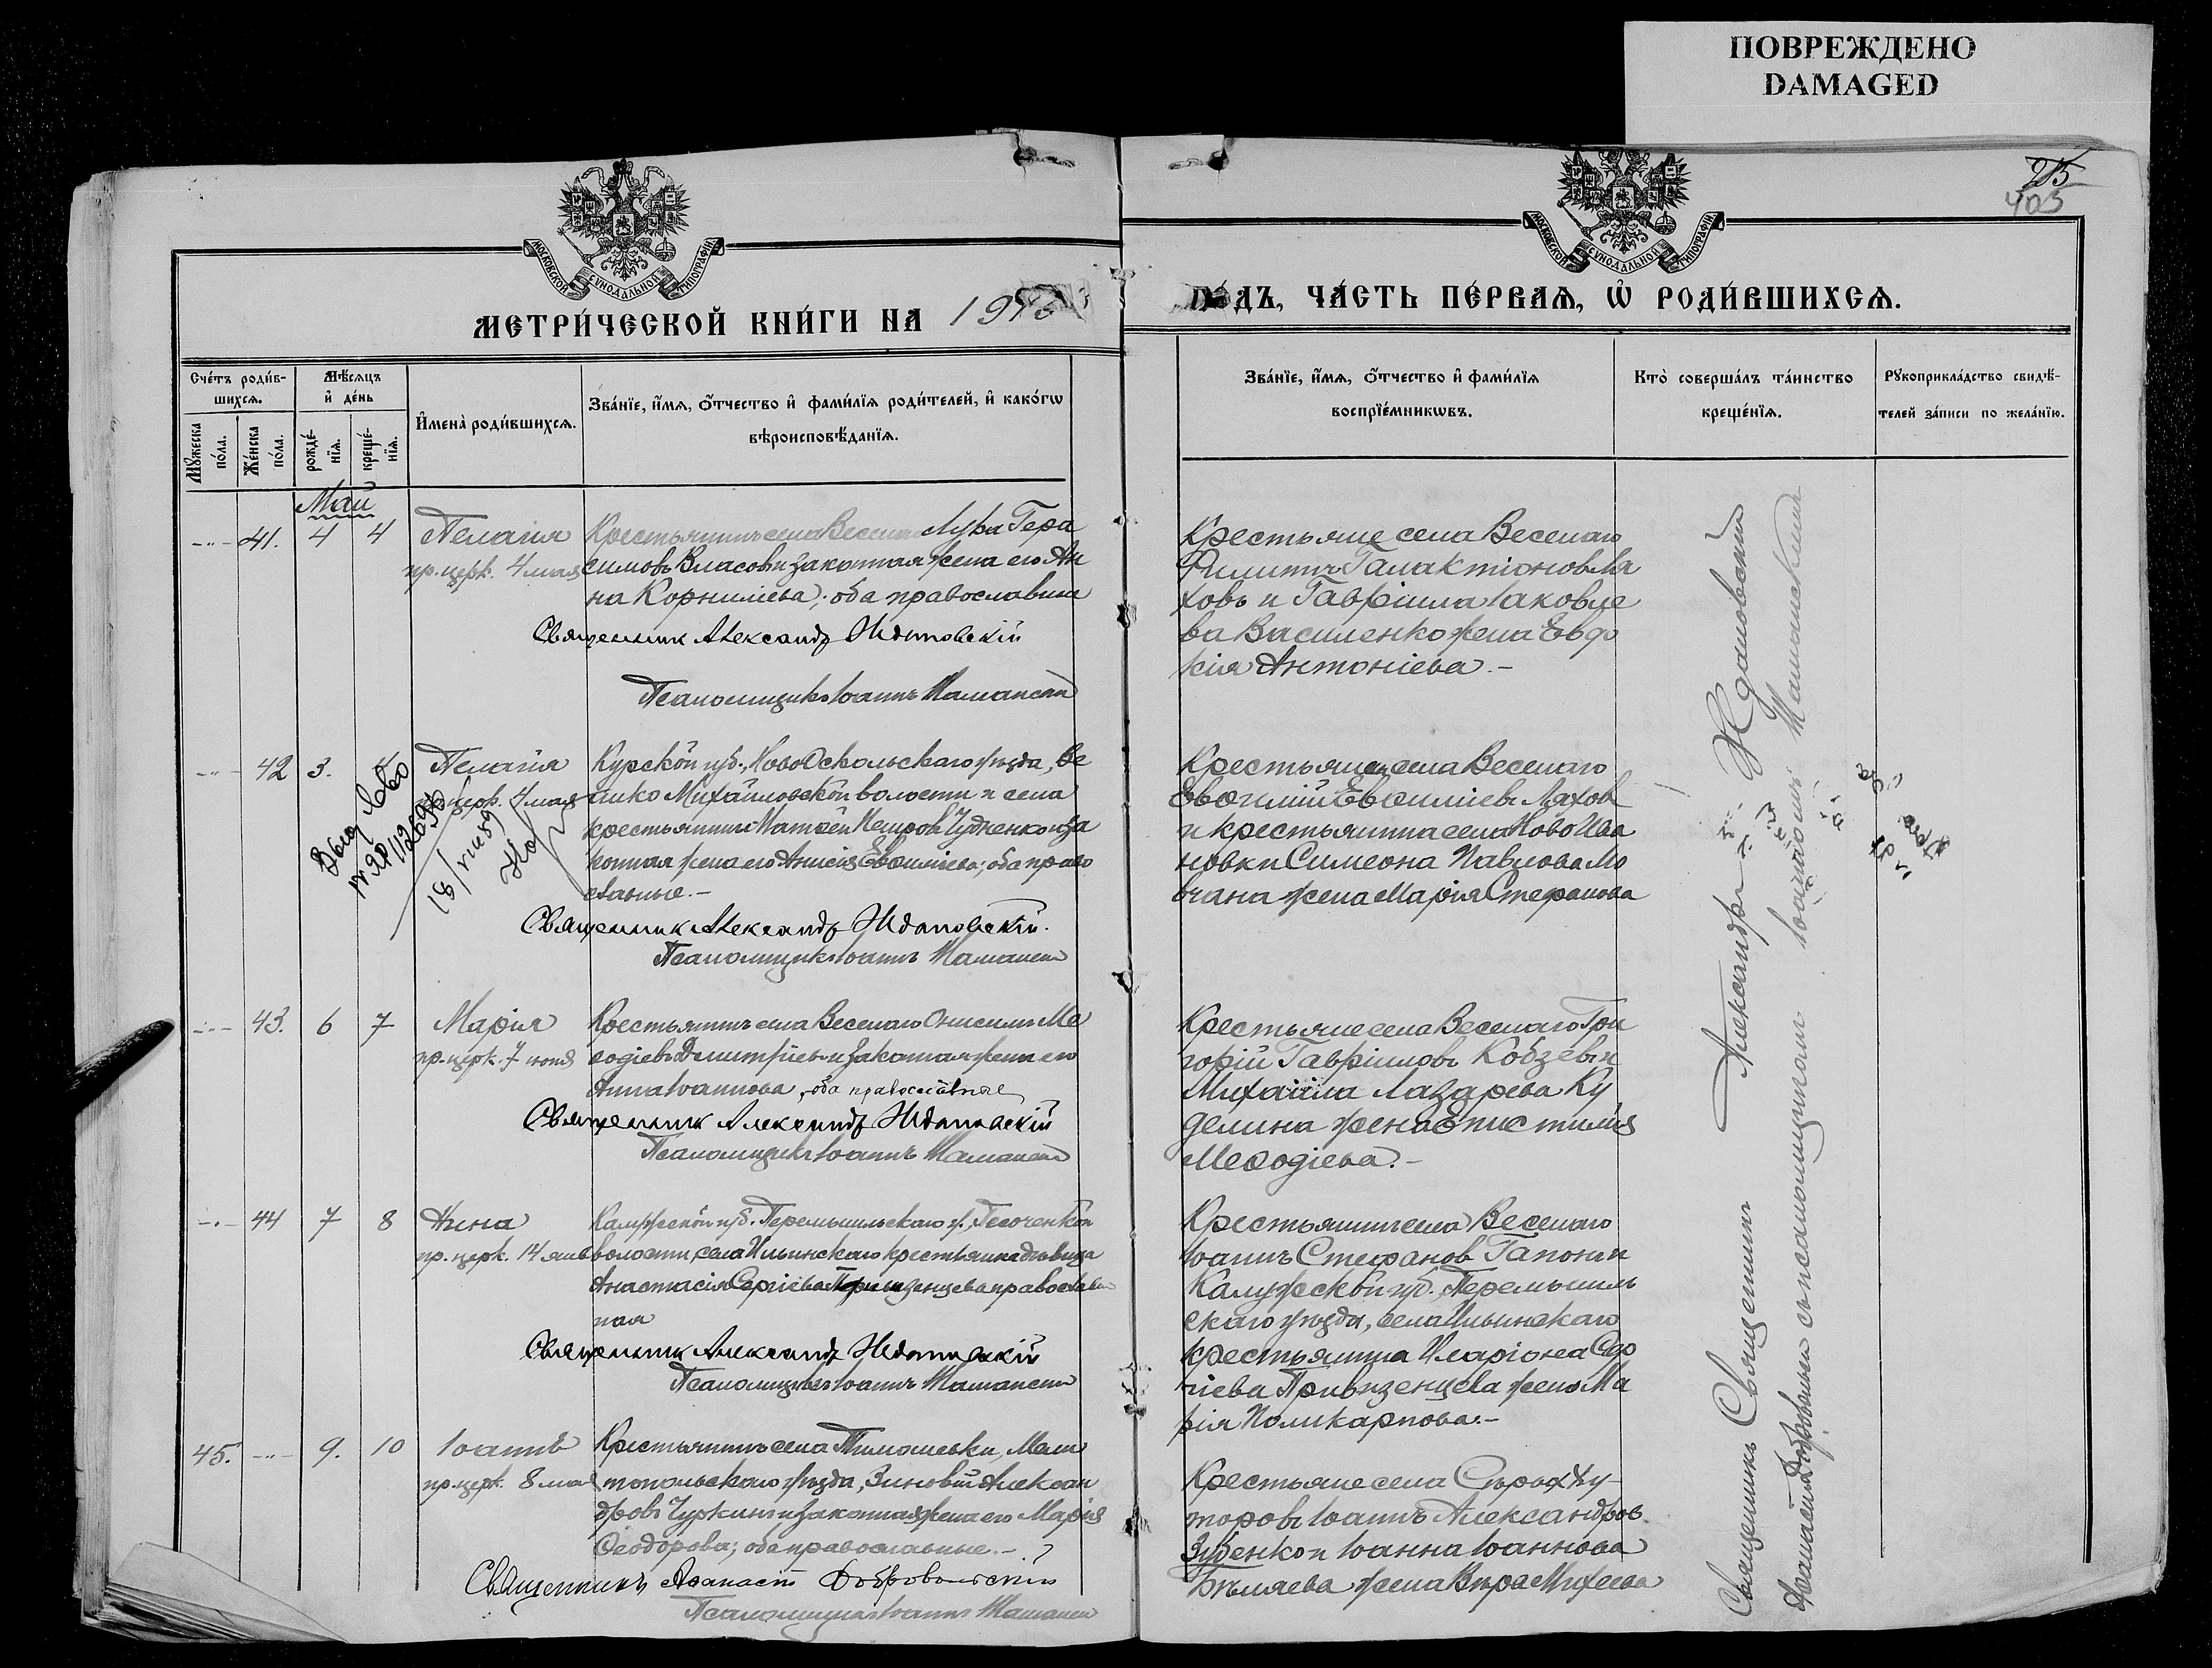 ПОВРЕЖДЕНО
DAMAGED
215
403
МОСКОВСКОЙ СѴНОДАЛЬНОЙ ТИПОГРАФІИ
МОСКОВСКОЙ СѴНОДАЛЬНОЙ ТИПОГРАФІИ
МЕТРИ́ЧЕСКОЙ КНИ́ГИ НА 19
ГО́ДЪ, ЧА́СТЬ ПЕ́РВАѦ, Ѡ҆ РОДИ́ВШИХСѦ.
Сче́тъ роди́в-
шихсѧ.
Мѣ́сѧцъ
и҆ де́нь
Мꙋ́жеска
по́ла.
Же́нска
по́ла.
рожде́-
нїѧ.
креще́-
нїѧ.
И҆мена̀ роди́вшихсѧ.
Зва́нїе, и҆́мѧ, ѻ҆́тчество и҆ фами́лїѧ роди́телей, и҆ како́гѡ
вѣроисповѣ́данїѧ.
Зва́нїе, и҆́мѧ, ѻ҆́тчество и҆ фами́лїѧ
воспрїе́мникѡвъ.
Кто̀ соверша́лъ та́инство
креще́нїѧ.
Рꙋкоприкла́дство свидѣ́-
телей за́писи по жела́нїю.
Май
41. 4 4 Пелагія
пр. церк. 4 мая
Крестьянинъ села Лука Гера
симовъ Власовъ и законная жена его Ан
на Корниліева; оба православные
Священник Александр Ждановскій
Псаломщикъ Іоаннъ
Крестьяне села Веселаго
Филиппъ Галактіоновъ Ля
ховъ и Гавріила Іаковле
ва Василенко жена Евдо
кія Антоніева.-
42 3. Пелагія
церк. 4 мая
Курской губ., Новооскольскаго уѣзда, Ве
лико Михайловской волости и села
крестьянинъ Матѳей Петровъ и за
конная жена его Анисія Евѳиміева; оба право
славные.-
Священник Александр Ждановскій.
Псаломщикъ Іоаннъ
Крестьяне села Веселаго
Евѳимій Евѳиміевъ Ляховъ
и крестьянина села Ново Ива
новки Симеона Павлова Мо
чана жена Марія Стефанова
43. 6 7 Марія
пр. церк. 7 іюня
Крестьянинъ села Веселаго Онисимъ Ме
ѳодіевъ Димитріевъ и законная жена его
Анна Іоаннова, оба православные
Священник Александр Ждановскій
Псаломщикъ Іоаннъ
Крестьяне села Веселаго Гри
горій Гавріиловъ Кобзевъ и
Михаила Лазарева Ку
делина жена Епистимія
Меѳодіева.-
44 7 8 Анна
пр. церк. 14
Калужской губ. Перемышльскаго у.,
волости, села Ильинскаго крестьянка дѣвица
Анастасія Сергіева православ
ная
Священник Александр Ждановскій
Псаломщикъ Іоаннъ
Крестьянинъ села Веселаго
Іоаннъ Стефанов Гапон и
Калужской губ. Перемышль
скаго уѣзда, села Ильинскаго
крестьянина Иларіона Сер
гіева Привезенцева жена Ма
рія Поликарпова.-
45. 9. 10 Іоаннъ
пр. церк. 8 мая
Крестьянинъ села Тимошевки, Мели
топольскаго уѣзда, Зиновій Алексан
дровъ Чуркинъ и законная жена его Марія
Ѳеодорова; оба православные.-
Священникъ Аѳанасій Добровольскій
Псаломщикъ Іоаннъ
Крестьяне села Сѣрых Ху-
торовъ Іоаннъ Александров
Зубенко и Іоанна Іоаннова
Бѣляева жена Вѣра Михеева
Священникъ Александръ Ждановскій
Священникъ
Аѳанасій Добровольскій съ псаломщикомъ Іоанномъ